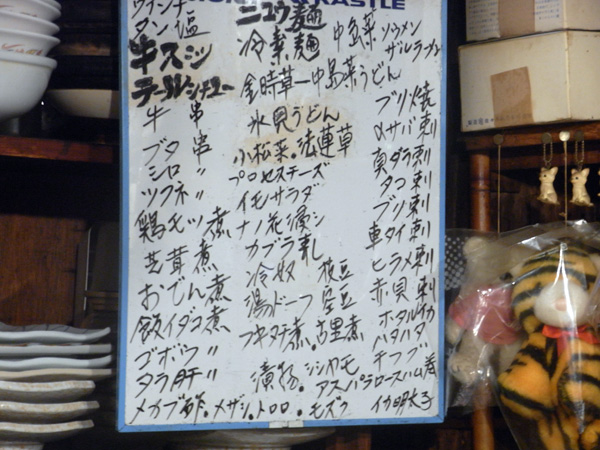 ウインナー
タン塩
牛スジ
テールシチュー
牛串
ブタ串
シロ〃
ツクネ〃
鶏モツ煮
芝茸煮
おでん煮
飯イダコ煮
ゴボウ〃
タラ肝〃
メカブ酢。メザシ。トロロ。モズク
KASTLE
ニュウ麺
冷素麺
金時草ー中島菜うどん
氷見うどん
小松菜。法蓮草
プロセスチーズ
イモサラダ
ナノ花漬シ
カブラ煮
冷奴 枝豆
湯ドーフ 空豆
フキタチ煮。古里煮
漬物。シシャモ
アスパラロースハム巻
中島菜ソウメン
ザルラーメン
ブリ焼
〆サバ刺
真ダラ刺
タコ刺
ブリ刺
車タイ刺
ヒラメ刺
赤貝刺
ホタルイカ
ハタハタ
チップ
イカ明太子